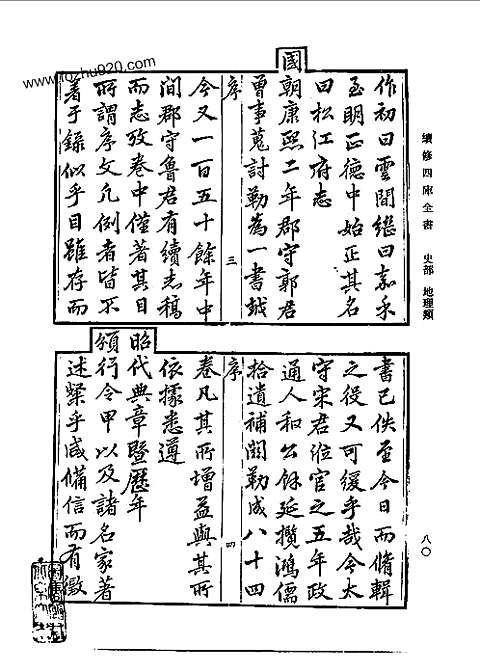 www.fozhu920.com
續修四庫全書 史部 地理類
八〇
作初曰雲間繼曰嘉禾
至明正德中始正其名
曰松江府志
國朝康熙二年郡守郭君
曾事蒐討勒為一書越
序
三
今又一百五十餘年中
間郡守魯君有續志稿
而志攷卷中僅著其目
所謂序文凡例者皆不
著于錄似乎目雖存而
書已佚至今日而脩輯
之役又可緩乎哉今太
守宋君涖官之五年政
通人和公餘延攬鴻儒
拾遺補闕勒成八十四
序
四
卷凡其所增益與其所
依據悉遵
昭代典章暨歷年
頒行令甲以及諸名家著
述粲乎咸備信而有徵